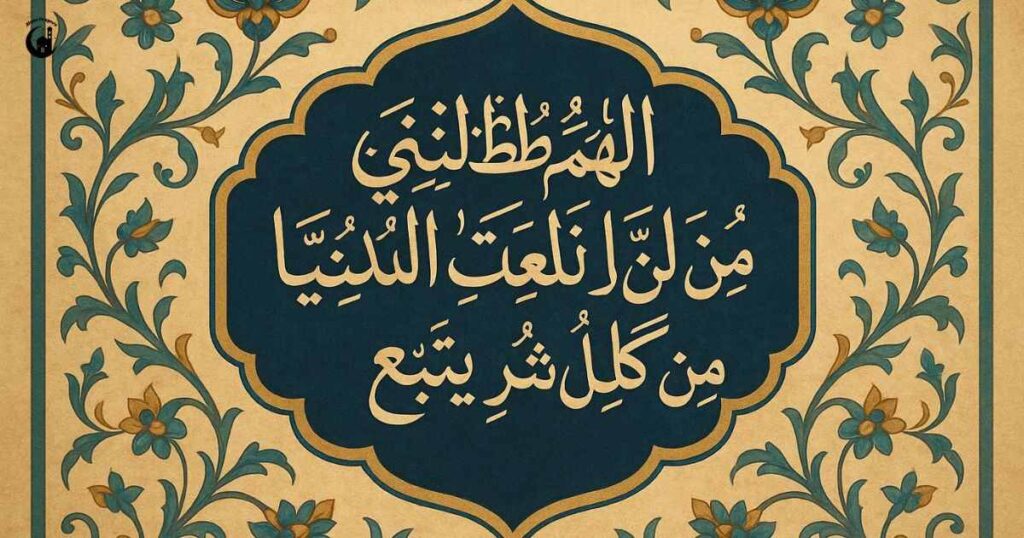 الهَمُّ طُظْلنِنِيَ
مُنَ لَنَّ إنَلعِتَِ الىُدُنِيَّا
مِن كَللِلُ شُرِ يتَبّع